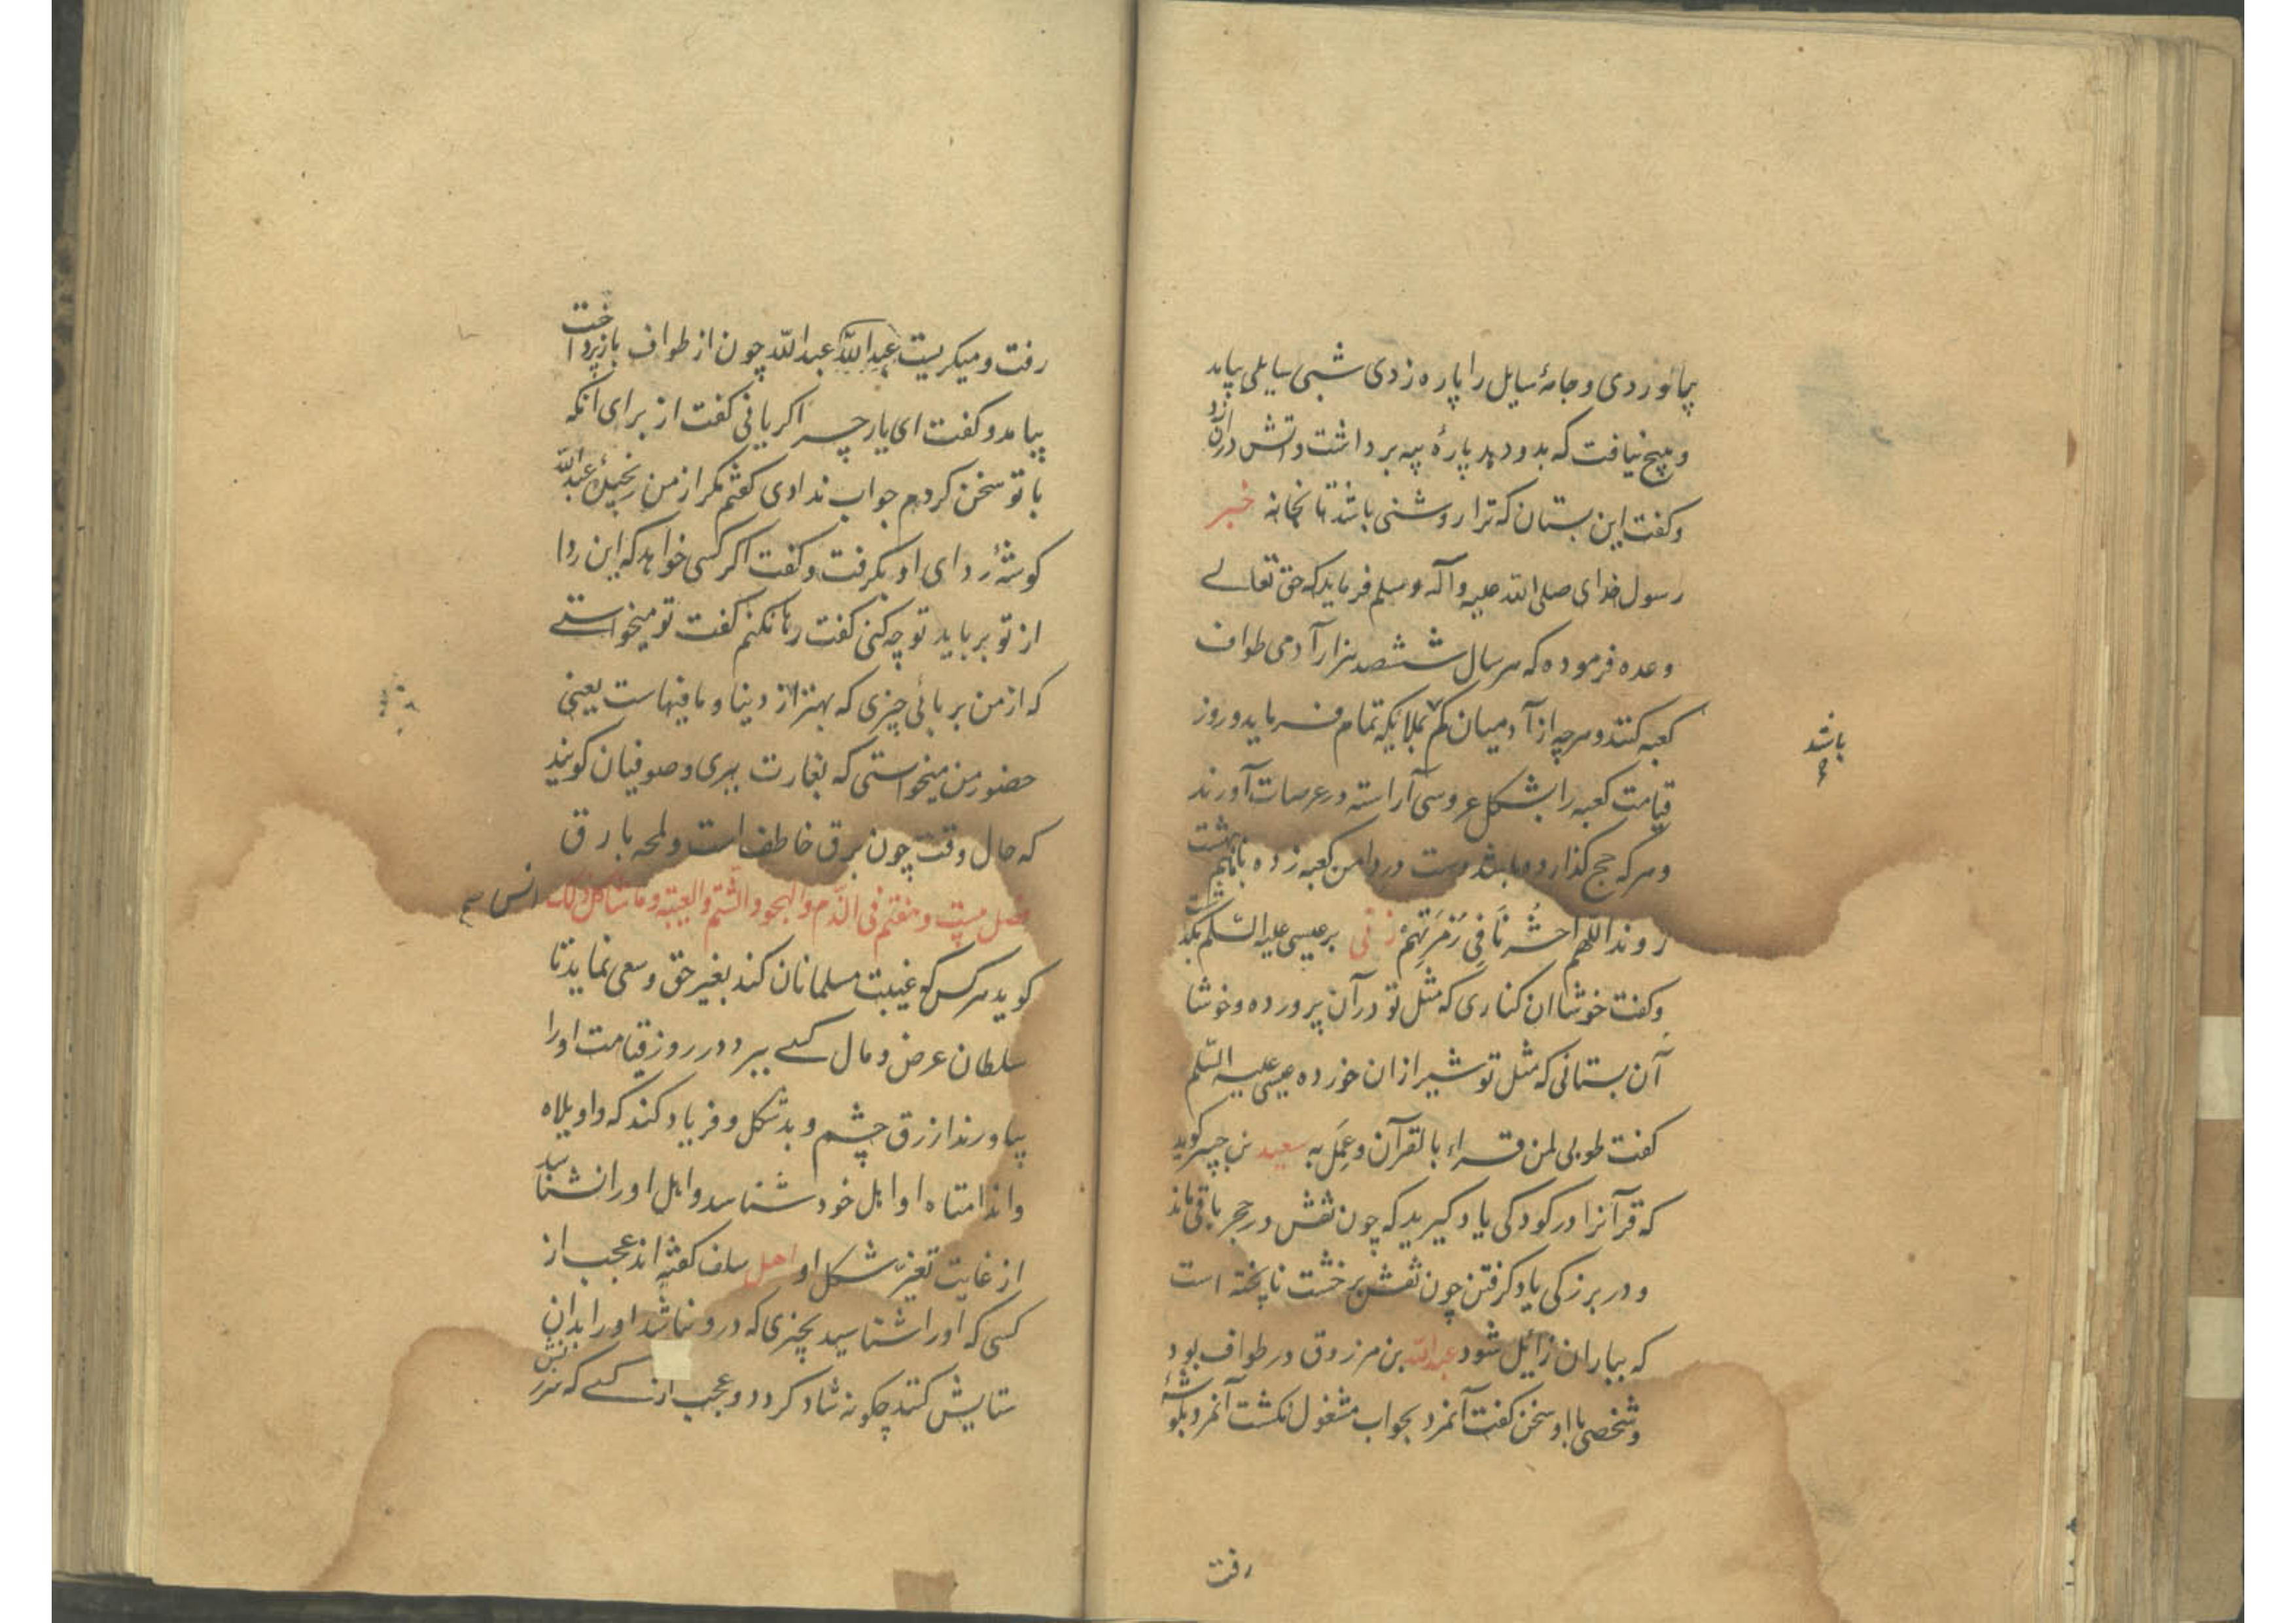 بیاوردی و جامهٔ سایل را پاره زدی شبی سایلی بیامد
و هیچ نیافت که بدو دهد پارهٔ پیه برداشت و آتش دران زد
و کفت این بستان که ترا روشنی باشد تا بخانه خبر
رسول خدای صلی الله علیه و آله و سلم فرماید که حق تعالے
وعده فرموده که هر سال ششصد هزار آدمی طواف
کعبه کنند و هرچه از آدمیان کم بملایکه تمام فرماید و روز
باشد
قیامت کعبه را بشکل عروسی آراسته در عرصات آورند
و هرکه حج کذارده باشد دست در دامن کعبه زده باهم بهشت
روند اللهم احشرنا فی زمرتهم زنی بر عیسی علیه السّلم بکذشت
و کفت خوشا ان کناری که مثل تو در آن پرورده و خوشا
آن بستانی که مثل تو شیر ازان خورده عیسی علیه السّلم
کفت طوبی لمن قراء بالقرآن و عمل به سعید بن جبیر کوید
که قرآنرا در کودکی یاد کیرید که چون نقش در حجر باقی ماند
و در بزرکی یاد کرفتن چون نقش بر خشت ناپخته است
که بباران زایل شود عبدالله بن مرزوق در طواف بود
و شخصی با او سخن کفت آنمرد بجواب مشغول نکشت آنمرد بکوشهٔ
رفت
رفت و میکریست عبدالله عبدالله چون از طواف بازپرداخت
بیامد و کفت ای یار چرا کریانی کفت از برای آنکه
با تو سخن کردم جواب ندادی کفتم مکر از من رنجیدهٔ عبدالله
کوشهٔ ردای او بکرفت و کفت اکر کسی خواهد که این ردا
از تو برباید تو چه کنی کفت رها نکنم کفت تو میخواستے
که از من بربائی چیزی که بهتر از دنیا و مافیهاست یعنی
حضور من میخواستی که بغارت ببری و صوفیان کویند
که حال وقت چون برق خاطف است و لمحه بارق
فصل بیست و هفتم فی الذّم والهجو والشّتم والغیبة وما شاکل ذلک انس
کوید هرکس که غیبت مسلمانان کند بغیر حق و سعی نماید تا
سلطان عرض و مال کسے ببرد در روز قیامت او را
بیاورند ازرق چشم و بدشکل و فریاد کند که واویلاه
واندامتاه او اهل خود شناسد و اهل او را نشناسد
از غایت تغیّر شکل او اهل سلف کفته اند عجب از
کسی که او را شناسید بچیزی که درو نباشد او را بدان
ستایش کنند چکونه شاد کردد و عجب از کسے که